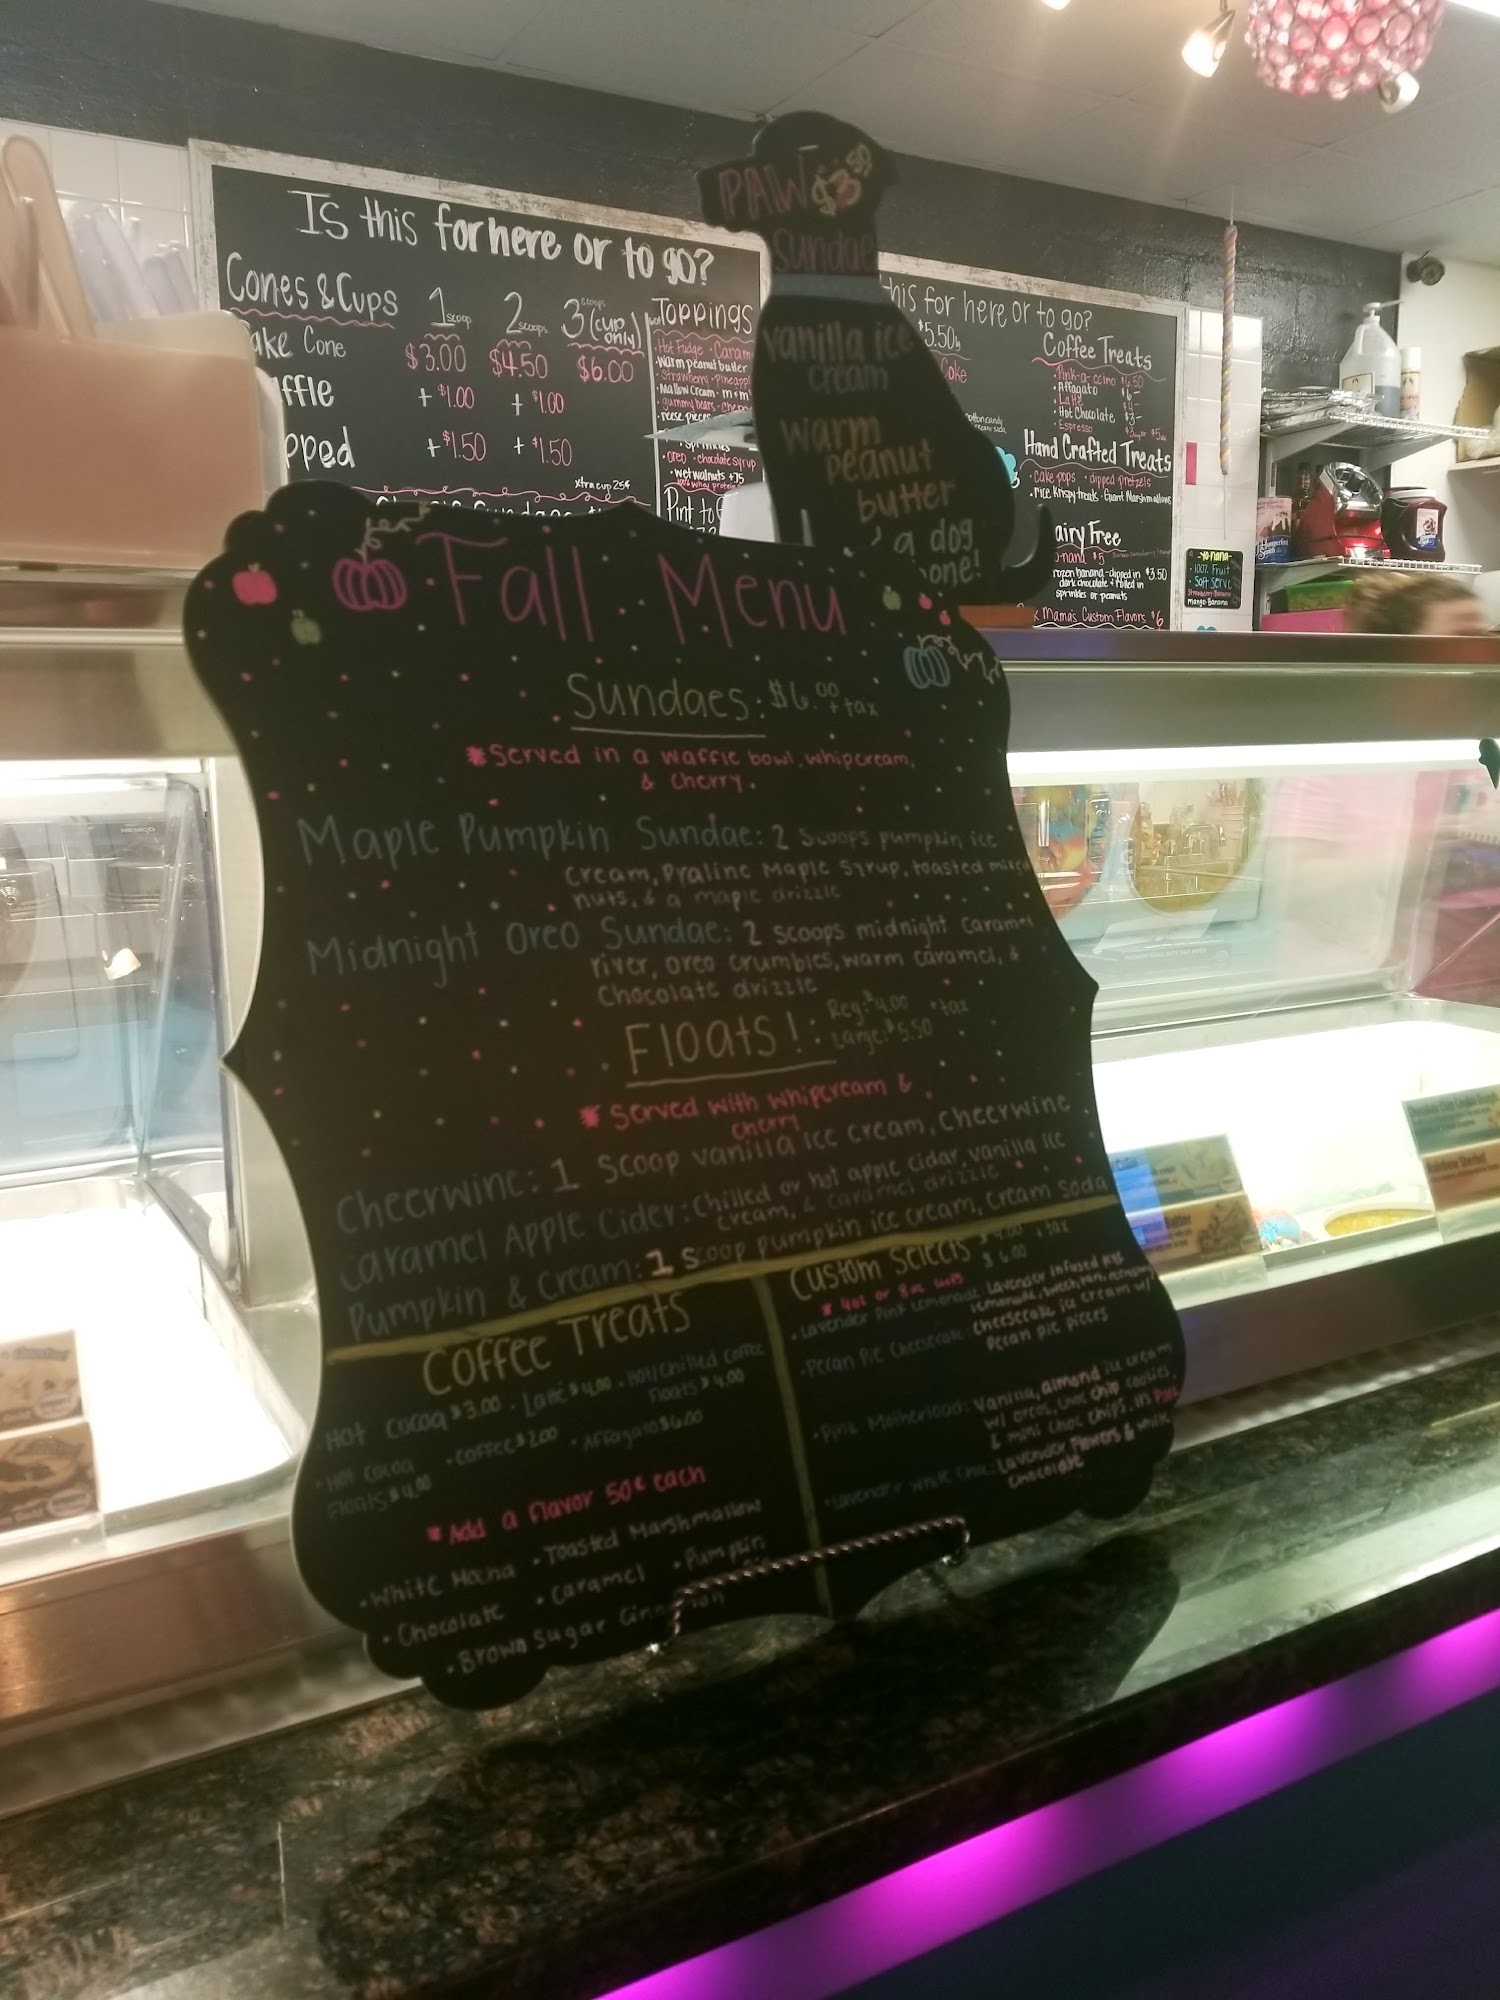 Is this for here or to go?
Cones & Cups
1 scoop
2 scoops
3 scoops (cup only)
ake Cone $3.00 $4.50 $6.00
ffle + $1.00 + $1.00
pped + $1.50 + $1.50
xtra cup 25¢
Toppings
Hot Fudge · Caram
warm peanut butter
Strawberry · Pineapp
Mallow Cream · m&m
gummy bears · cherr
reese pieces
sprinkles
oreo · chocolate syrup
wet walnuts +75
Pint to G
PAW $3.50
Sundae
vanilla ice
cream
warm
peanut
butter
a dog
one!
this for here or to go?
$5.50
Coke
Coffee Treats
Pink-a-ccino $6.50
Affagato $6-
Latte
Hot Chocolate $3-
Espresso
Hand Crafted Treats
cake pops · dipped pretzels
rice krispy treats · Giant Marshmallows
airy Free
o-nana $5
rozen banana-dipped in $3.50
dark chocolate + rolled in
sprinkles or peanuts
Mama's Custom Flavors $6
-yo-nana-
100% Fruit
Soft Serve
Strawberry-Banana
Mango-Banana
Fall Menu
Sundaes: $6.00 + tax
*Served in a waffle bowl, whipcream,
& cherry.
Maple Pumpkin Sundae: 2 scoops pumpkin ice
cream, Praline Maple Syrup, toasted mixed
nuts, & a maple drizzle
Midnight Oreo Sundae: 2 scoops midnight caramel
river, oreo crumbles, warm caramel, &
chocolate drizzle
Floats!: Reg: $4.00 + tax
Large: $5.50
* Served with whipcream &
cherry
Cheerwine: 1 scoop vanilla ice cream, cheerwine
Caramel Apple Cider: Chilled or hot apple cidar, vanilla ice
cream, & caramel drizzle
Pumpkin & Cream: 1 scoop pumpkin ice cream, cream soda
Coffee Treats
Hot Cocoa $3.00 · Latte $4.00 · Hot/Chilled Coffee
Floats $4.00
· Hot Cocoa
Floats $4.00
· Coffee $2.00
· Affagato $6.00
* Add a flavor 50¢ each
· White Mocha · Toasted Marshmallow
· Chocolate · Caramel · Pumpkin
· Brown Sugar Cinnamon
Custom Selects $4.00 + tax
$6.00
* 4oz or 8oz cups
· Lavender Pink Lemonade: Lavender infused
lemonade,
· Pecan Pie Cheesecake: Cheesecake ice cream w/
Pecan pie pieces
· Pink Motherload: Vanilla, almond ice cream
w/ oreos, choc chip cookies,
& mini choc chips, in Pink
· Lavender White Choc: Lavender flowers & white
chocolate